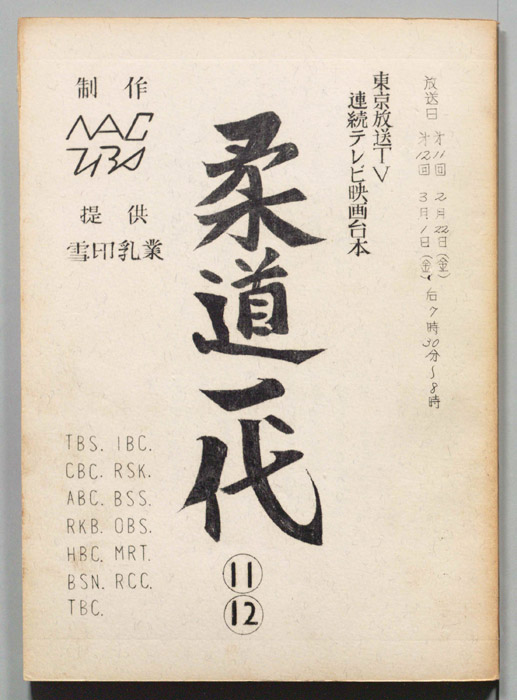 放送日
第11回 2月22日(金)
第12回 3月1日(金)
后7時30分〜8時
東京放送TV
連続テレビ映画台本
柔道一代
11
12
制作
NAC
TBS
提供
雪印乳業
TBS. IBC.
CBC. RSK.
ABC. BSS.
RKB. OBS.
HBC. MRT.
BSN. RCC.
TBC.